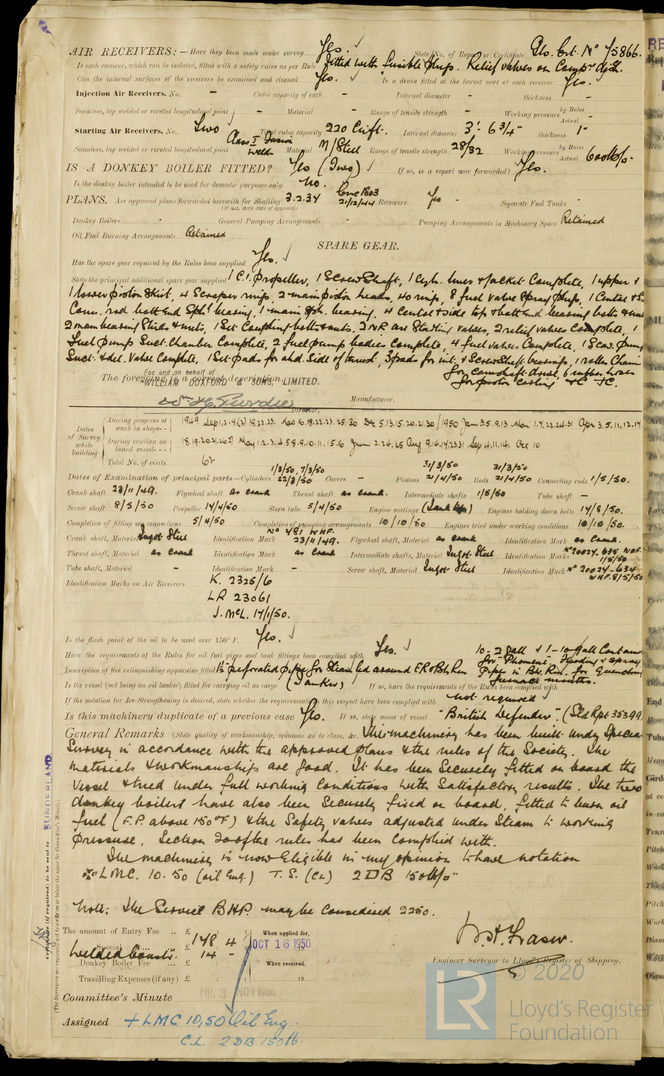 AIR RECEIVERS:— Have they been made under survey Yes. ✓ State No. of Report or Certificate Gls. Crt. No 75866.
Is each receiver, which can be isolated, fitted with a safety valve as per Rule Fitted with fusible plugs. Relief valves on Compr. disch.
Can the internal surfaces of the receivers be examined and cleaned Yes. ✓ Is a drain fitted at the lowest part of each receiver Yes. ✓
Injection Air Receivers, No. - Cubic capacity of each - Internal diameter - thickness -
Seamless, lap welded or riveted longitudinal joint - Material - Range of tensile strength - Working pressure by Rules Actual -
Starting Air Receivers, No. Two Total cubic capacity 220 C.ft. Internal diameter 3'. 6 3/4" thickness 1"
Seamless, lap welded or riveted longitudinal joint Class I Fusion Weld Material M/Steel Range of tensile strength 28/32 Working pressure by Rules Actual 600 lb/□"
IS A DONKEY BOILER FITTED? Yes (Two) If so, is a report now forwarded? Yes.
Is the donkey boiler intended to be used for domestic purposes only No.
PLANS. Are approved plans forwarded herewith for Shafting 3.2.34 Receivers Yes Separate Fuel Tanks -
(If not, state date of approval) 21/12/44
Donkey Boilers - General Pumping Arrangements - Pumping Arrangements in Machinery Space Retained
Oil Fuel Burning Arrangements Retained
SPARE GEAR.
Has the spare gear required by the Rules been supplied Yes. ✓
State the principal additional spare gear supplied 1 C.I. Propeller, 1 Screw Shaft, 1 Cyl. liner & jacket Complete, 1 upper &
1 lower piston skirt, 4 Scraper rings, 2 main piston heads, 40 rings, 8 fuel valve spray plugs, 1 Center & 1 s
Conn. rod bott end Sph. bearing, 1 main Sph. bearing, 4 center & side top & bott end bearing bolts & nuts
2 main bearing Studs & nuts, 1 Set Coupling bolts & nuts, 2 N.R. air Starting valves, 2 relief valves Complete, 1
fuel pump Suct. Chamber Complete, 2 fuel pump bodies Complete, 4 fuel valves Complete, 1 Scav. pump
Suct. & del. valve Complete, 1 Set pads for ahd. Side of thrust, 3 pads for int. & Screw Shaft bearings, 1 roller Chain
for camshaft drive, 6 rubber hoses
for piston cooling &c &c.
The foregoing is a correct description,
For and on behalf of
WILLIAM DOXFORD & SONS, LIMITED.
Director. Manufacturer.
Dates of Survey while building
During progress of work in shops - -
1949 Sep 1.2.
During erection on board vessel - - -
Total No. of visits 62
Dates of Examination of principal parts—Cylinders 1/3/50, 7/3/50 22/3/50 Covers - Pistons 31/3/50 21/4/50 Rods 31/3/50 21/4/50 Connecting rods 1/5/50.
Crank shaft 23/11/49. Flywheel shaft as crank Thrust shaft as crank. Intermediate shafts 1/5/50 Tube shaft -
Screw shaft 8/5/50 Propeller 14/4/50 Stern tube 5/4/50 Engine seatings (Tank top) Engines holding down bolts 14/8/50.
Completion of fitting sea connections 5/4/50 Completion of pumping arrangements 10/10/50 Engines tried under working conditions 10/10/50.
Crank shaft, Material Ingot Steel Identification Mark No 481 WHF. 23/11/49. Flywheel shaft, Material as crank Identification Mark as crank.
Thrust shaft, Material as crank Identification Mark as crank Intermediate shafts, Material Ingot Steel Identification Marks No 20024-634 WHF. 1/5/50
Tube shaft, Material - Identification Mark - Screw shaft, Material Ingot Steel Identification Mark No 20024-634 WHF. 8/5/50
Identification Marks on Air Receivers K. 2325/6
LR 23061
J. McL. 17/1/50.
Is the flash point of the oil to be used over 150° F. Yes. ✓
Have the requirements of the Rules for oil fuel pipes and tank fittings been complied with Yes. ✓
Description of fire extinguishing apparatus fitted 1½" perforated pipe for Steam led around E.R. & Blr. Rm 10 - 2 gall & 1 - 10 gall Containers
for "Phomene" flooding & spray
pipe in Blr. Rm. for quenching
furnace mouths.
Is the vessel (not being an oil tanker) fitted for carrying oil as cargo (Tanker) If so, have the requirements of the Rules been complied with
If the notation for Ice Strengthening is desired, state whether the requirements in this respect have been complied with not required ✓
Is this machinery duplicate of a previous case Yes. If so, state name of vessel "British Defender". (Sld Rpt 35399
General Remarks (State quality of workmanship, opinions as to class, &c. This machinery has been built under Special
Survey in accordance with the approved plans & the rules of the Society. The
materials & workmanship are good. It has been Securely fitted on board the
Vessel & tried under full working Conditions with Satisfactory results. The two
donkey boilers have also been Securely fixed on board, fitted to burn oil
fuel (F.P. above 150°F) & the Safety valves adjusted under Steam to working
pressure. Section 20 of the rules has been Complied with.
The machinery is now Eligible in my opinion to have notation
✠ LMC. 10.50 (oil Eng.) T.S. (CL) 2 DB 150 lb/□"
Note: The Service B.H.P. may be Considered 2250.
The amount of Entry Fee .. £ : :
Special .. £ 148 : 4 :
Welded Constr. £ 14 : - :
Donkey Boiler Fee .. £ : :
Travelling Expenses (if any) £ : :
When applied for,
OCT 16 1950
When received,
19
Engineer Surveyor to Lloyd's Register of Shipping.
Committee's Minute
FRI. 3 NOV 1950
Assigned + LMC 10,50 Oil Eng.
C.L. 2DB 150 lb.
SUNDERLAND
© 2020
LR
Lloyd's Register
Foundation